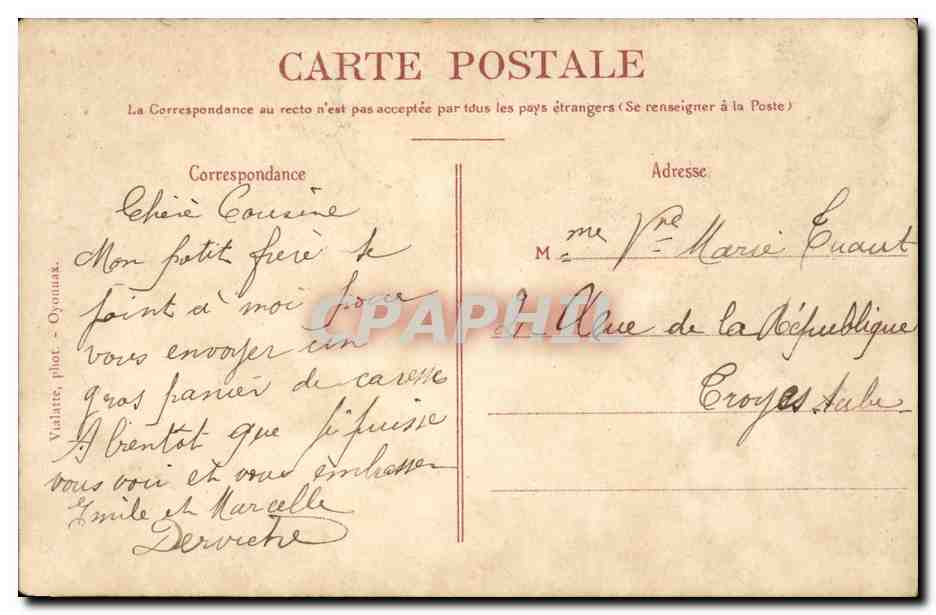 CARTE POSTALE
La Correspondance au recto n'est pas acceptée par tous les pays étrangers (Se renseigner à la Poste)
Correspondance
Chère Cousine
Mon petit frère se
joint à moi pour
vous envoyer un
gros panier de caresse
A bientot que je puisse
vous voir et vous embrasser
Emile et Marcelle
Vialatte, phot. - Oyonnax.
Adresse
Mme Vve Marie
Rue de la République
Troyes Aube
CPAPHIL